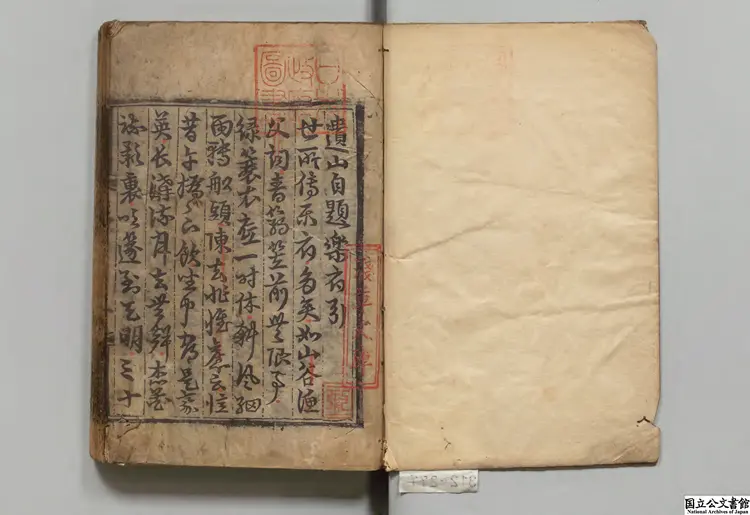 遺山自題樂府引
世所傳樂府多矣如山谷漁
父詞青篛笠前無限事
綠蓑衣底一時休斜風細
雨轉船頭陳去非懷舊云憶
昔午橋々上飲坐中都是豪
英長溝流月去無聲杏花
疎影裏吹笛到天明三十
日本政府圖書
淺草文庫
国立公文書館
National Archives of Japan